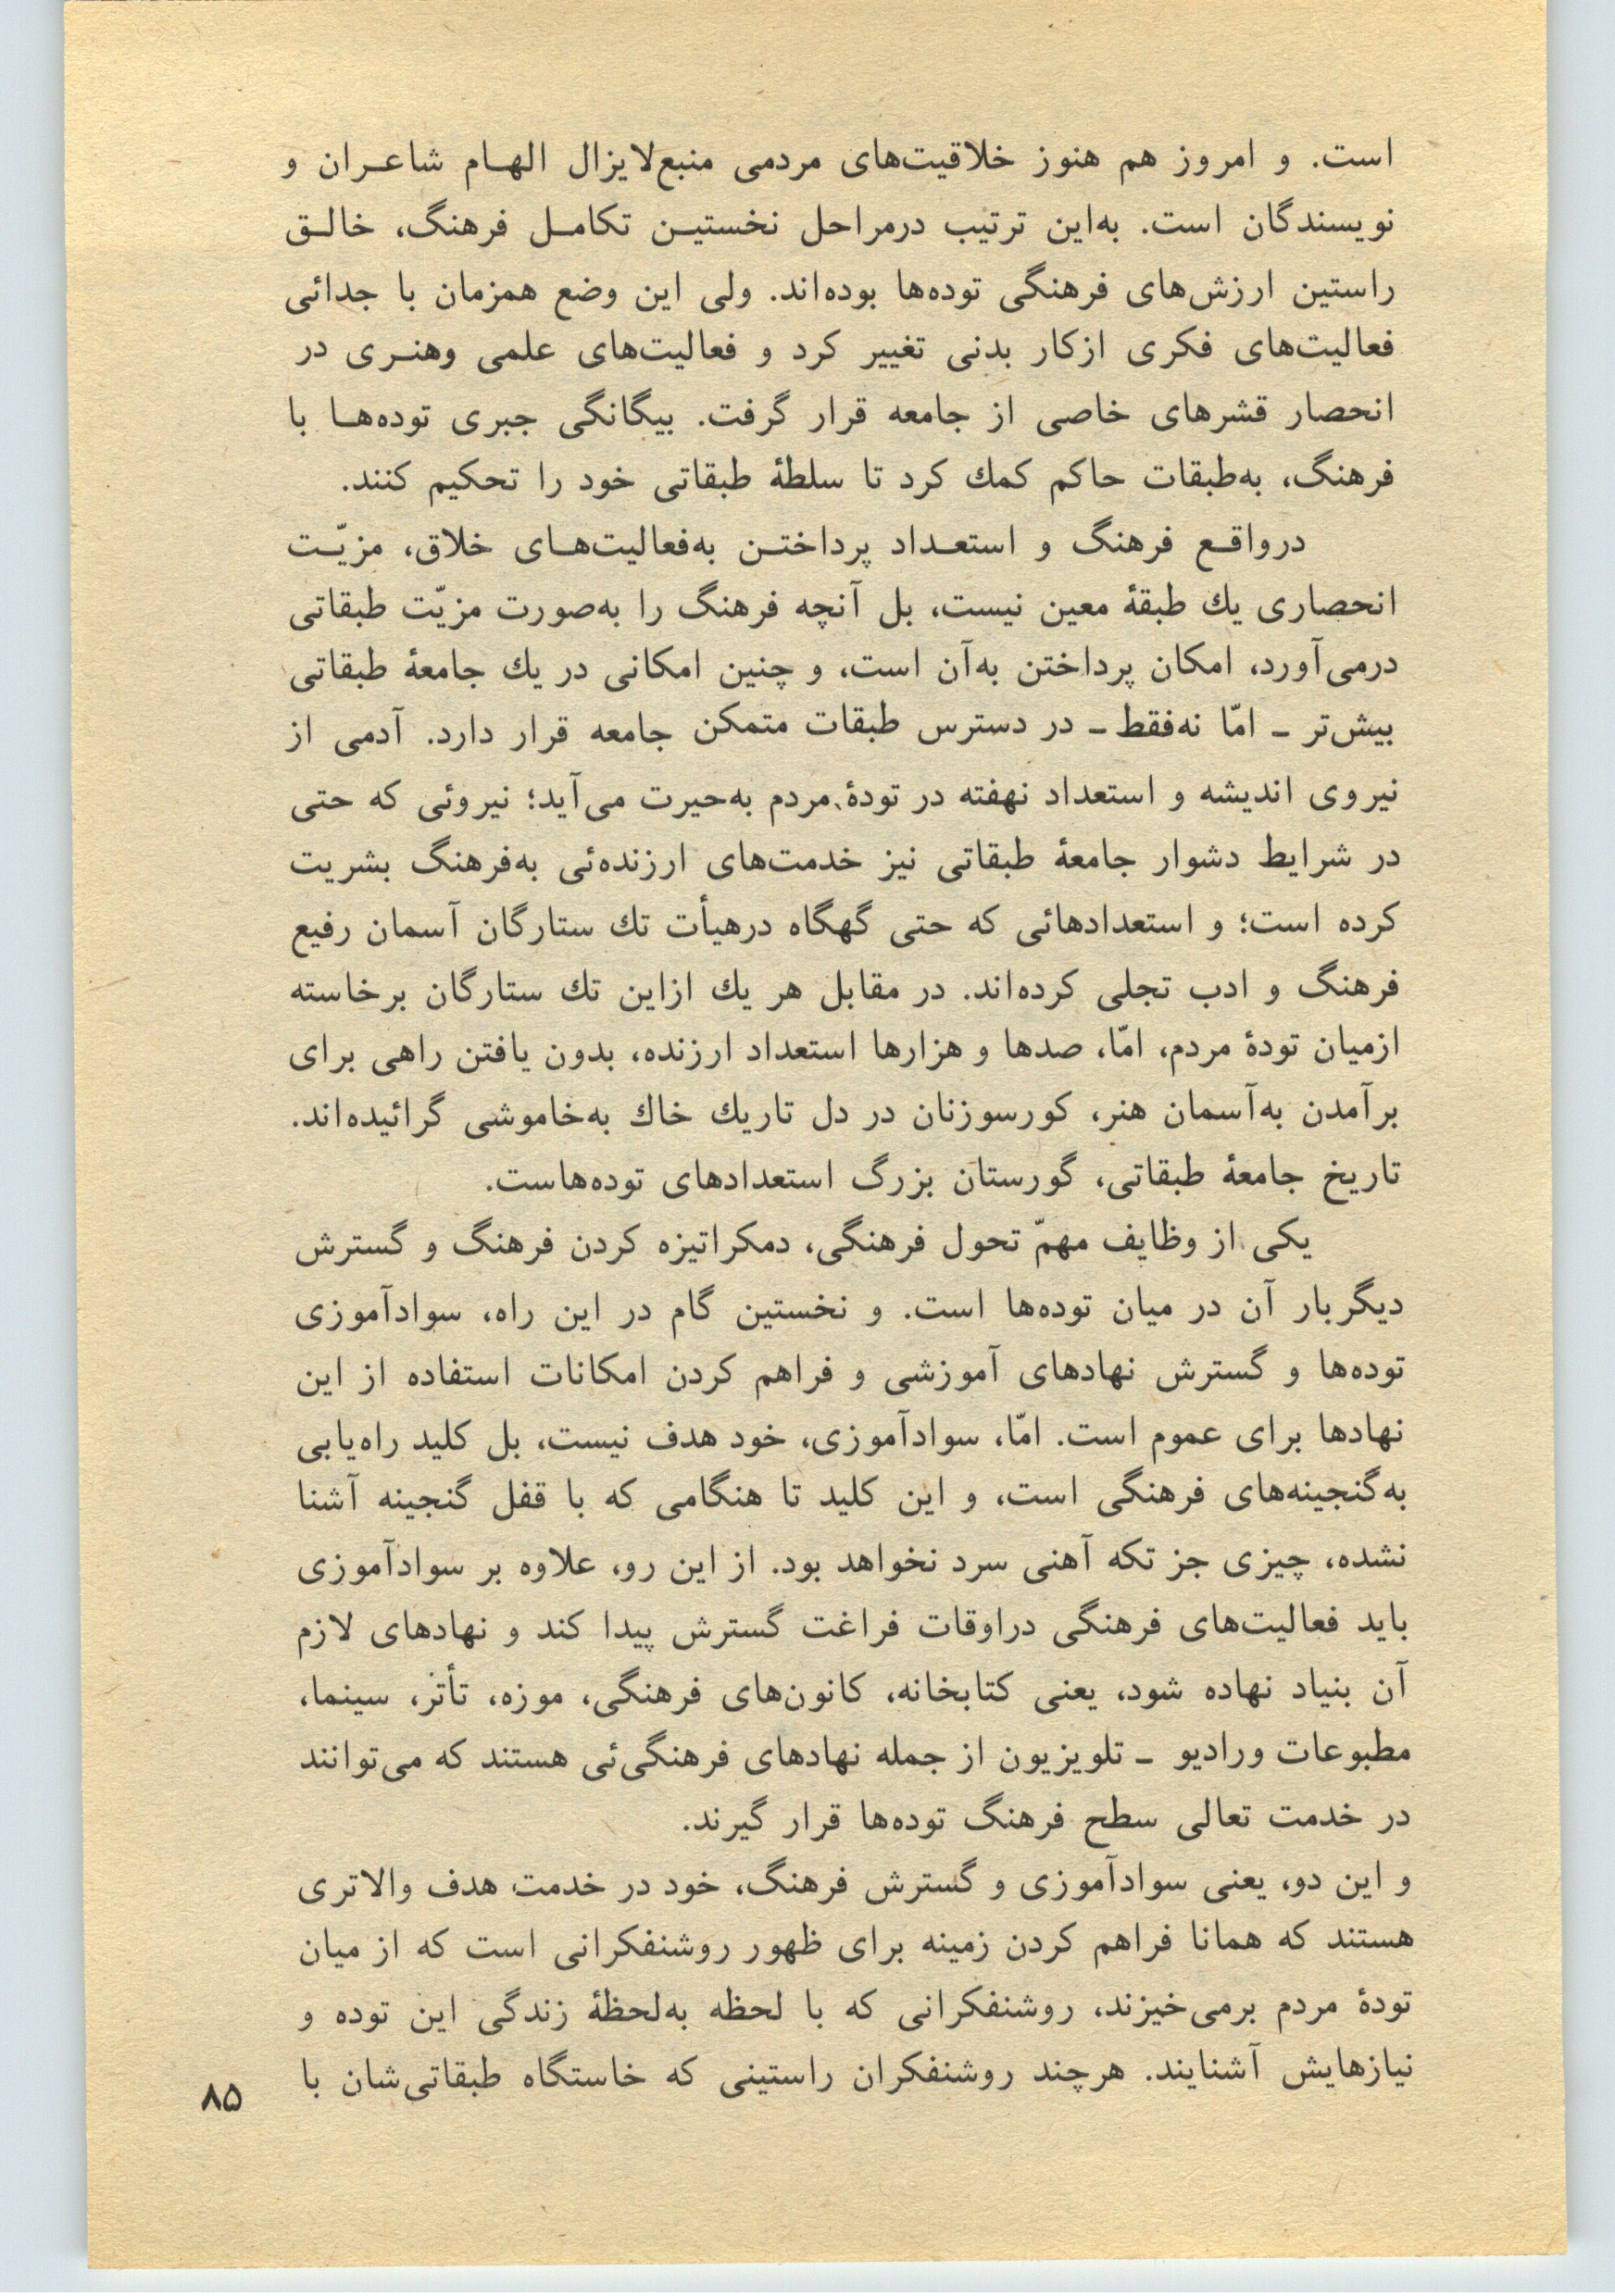 است. و امروز هم هنوز خلاقیت‌های مردمی منبع‌لایزال الهـام شاعـران و
نویسندگان است. به‌این ترتیب درمراحل نخستیـن تکامـل فرهنگ، خالـق
راستین ارزش‌های فرهنگی توده‌ها بوده‌اند. ولی این وضع همزمان با جدائی
فعالیت‌های فکری ازکار بدنی تغییر کرد و فعالیت‌های علمی وهنـری در
انحصار قشرهای خاصی از جامعه قرار گرفت. بیگانگی جبری توده‌هـا با
فرهنگ، به‌طبقات حاکم کمك کرد تا سلطهٔ طبقاتی خود را تحکیم کنند.
درواقـع فرهنگ و استعـداد پرداختـن به‌فعالیت‌هـای خلاق، مزیّـت
انحصاری یك طبقهٔ معین نیست، بل آنچه فرهنگ را به‌صورت مزیّت طبقاتی
درمی‌آورد، امکان پرداختن به‌آن است، و چنین امکانی در یك جامعهٔ طبقاتی
بیش‌تر ـ امّا نه‌فقط ـ در دسترس طبقات متمکن جامعه قرار دارد. آدمی از
نیروی اندیشه و استعداد نهفته در تودهٔ مردم به‌حیرت می‌آید؛ نیروئی که حتی
در شرایط دشوار جامعهٔ طبقاتی نیز خدمت‌های ارزنده‌ئی به‌فرهنگ بشریت
کرده است؛ و استعدادهائی که حتی گهگاه درهیأت تك ستارگان آسمان رفیع
فرهنگ و ادب تجلی کرده‌اند. در مقابل هر یك ازاین تك ستارگان برخاسته
ازمیان تودهٔ مردم، امّا، صدها و هزارها استعداد ارزنده، بدون یافتن راهی برای
برآمدن به‌آسمان هنر، کورسوزنان در دل تاریك خاك به‌خاموشی گرائیده‌اند.
تاریخ جامعهٔ طبقاتی، گورستان بزرگ استعدادهای توده‌هاست.
یکی از وظایف مهمّ تحول فرهنگی، دمکراتیزه کردن فرهنگ و گسترش
دیگربار آن در میان توده‌ها است. و نخستین گام در این راه، سوادآموزی
توده‌ها و گسترش نهادهای آموزشی و فراهم کردن امکانات استفاده از این
نهادها برای عموم است. امّا، سوادآموزی، خود هدف نیست، بل کلید راه‌یابی
به‌گنجینه‌های فرهنگی است، و این کلید تا هنگامی که با قفل گنجینه آشنا
نشده، چیزی جز تکه آهنی سرد نخواهد بود. از این رو، علاوه بر سوادآموزی
باید فعالیت‌های فرهنگی دراوقات فراغت گسترش پیدا کند و نهادهای لازم
آن بنیاد نهاده شود، یعنی کتابخانه، کانون‌های فرهنگی، موزه، تأتر، سینما،
مطبوعات ورادیو ـ تلویزیون از جمله نهادهای فرهنگی‌ئی هستند که می‌توانند
در خدمت تعالی سطح فرهنگ توده‌ها قرار گیرند.
و این دو، یعنی سوادآموزی و گسترش فرهنگ، خود در خدمت هدف والاتری
هستند که همانا فراهم کردن زمینه برای ظهور روشنفکرانی است که از میان
تودهٔ مردم برمی‌خیزند، روشنفکرانی که با لحظه به‌لحظهٔ زندگی این توده و
نیازهایش آشنایند. هرچند روشنفکران راستینی که خاستگاه طبقاتی‌شان با
۸۵